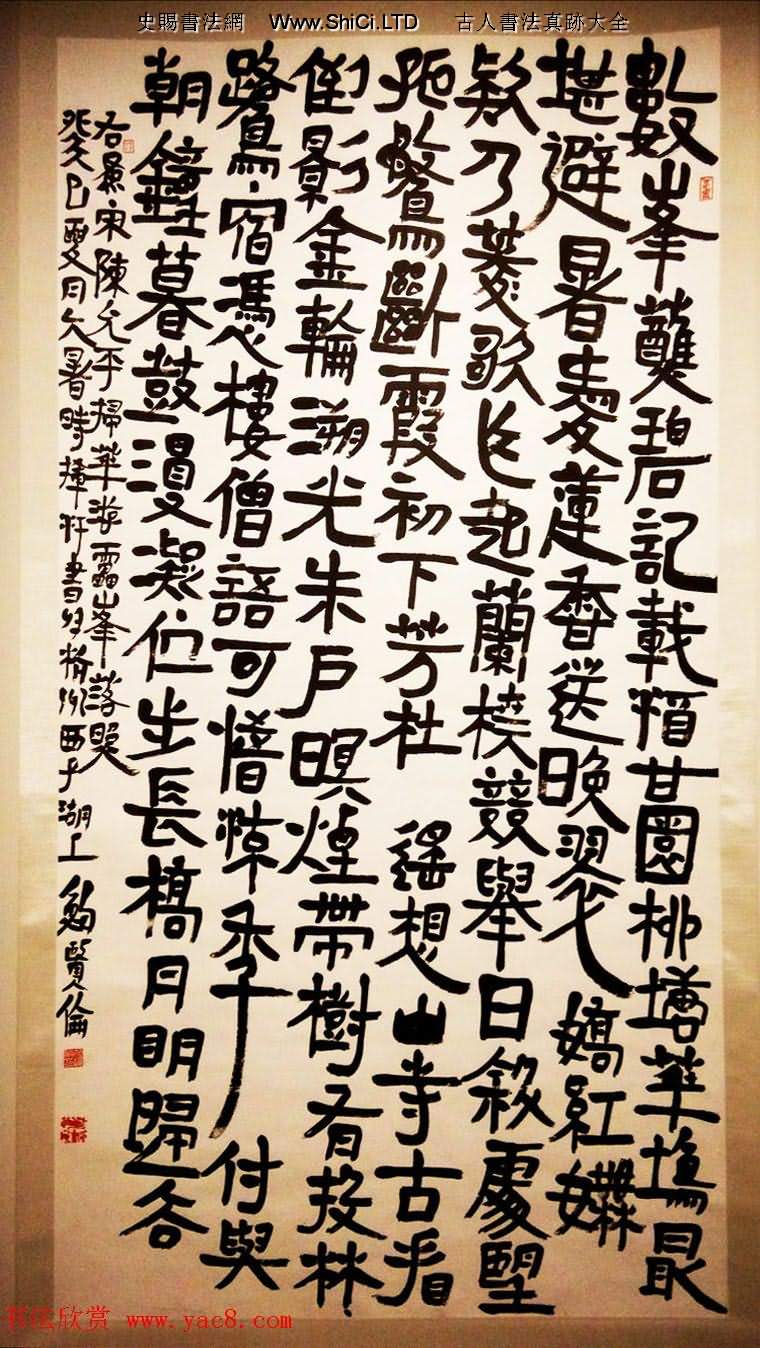 史賜書法網 Www.ShiCi.LTD 古人書法真跡大全
數峯蘸碧記載酒甘園柳塘華塢最
堪避暑愛蓮香送晚翠嬌紅嫵
欸乃菱歌乍起蘭橈競舉日斜處望
孤鶩斷霞初下芳杜 遥想山寺古看
倒影金輪溯光朱戶暝煙帶樹有投林
鷺宿憑樓僧語可惜流年付與
朝鐘暮鼓漫凝佇步長橋月明歸去
右景宋陳允平掃華游雷峯落照
癸巳夏月大暑時揮汗書於杭州西子湖上 鮑賢倫
书法欣赏 www.yac8.com